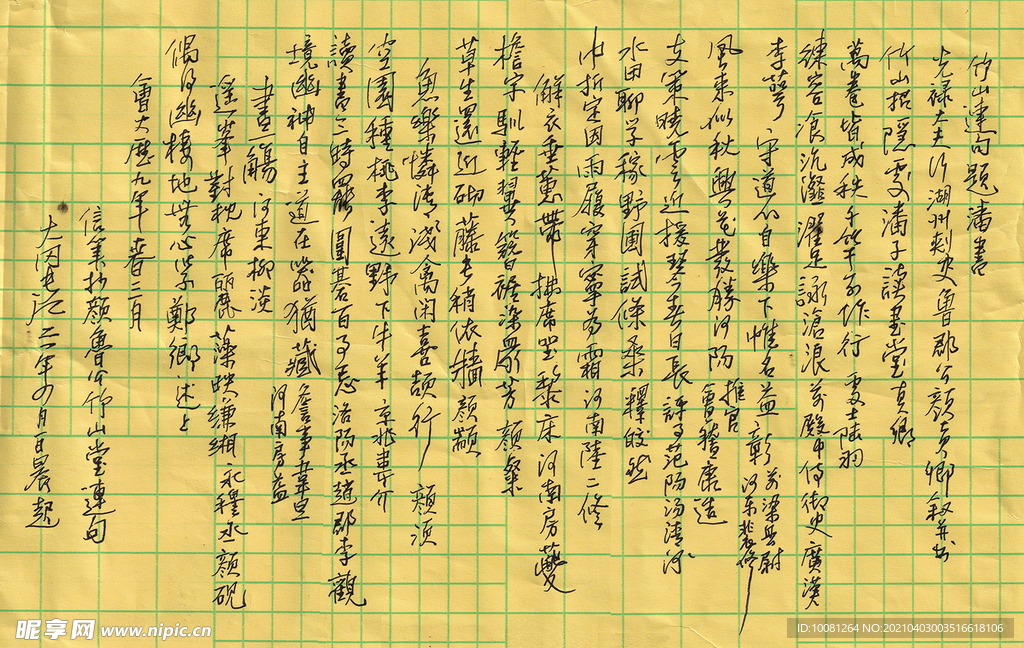 竹山連句題潘書
光禄大夫行湖州刺史魯郡公顏真卿叙并書
竹山招隱處潘子讀書堂真卿
萬卷皆成秩千竿不作行處士陸羽
練容飡沆瀣濯足詠滄浪前殿中侍御史廣漢
李萼守道心自樂下帷名益彰前梁縣尉河東裴修
風來似秋興花發勝河陽推官會稽康造
支策曉雲近援琴春日長評事范陽湯清河
水田聊學稼野圃試條桑釋皎然
巾折定因雨履穿寧為霜河南陸士修
解衣垂蕙帶拂席坐藜床河南房夔
檐宇馴輕翼簪裾染眾芳顏粲
草生還近砌藤長稍依牆顏顓
魚樂憐清淺禽閑喜頡行顏須
空園種桃李遠野下牛羊京兆韋介
讀書三時罷圍碁百事忘洛陽丞趙郡李觀
境幽神自王道在器猶藏詹事韋旦河南房益
晝歠山僧茗宵傳野客觴河東柳淡
遥峯對枕席麗藻映縑緗永穆丞顏峴
偶得幽棲地無心學鄭鄉述上
會大曆九年春三月
信筆抄顏魯公竹山堂連句
昵享网 www.nipic.cn
ID:10081264 NO:20210403003516618106